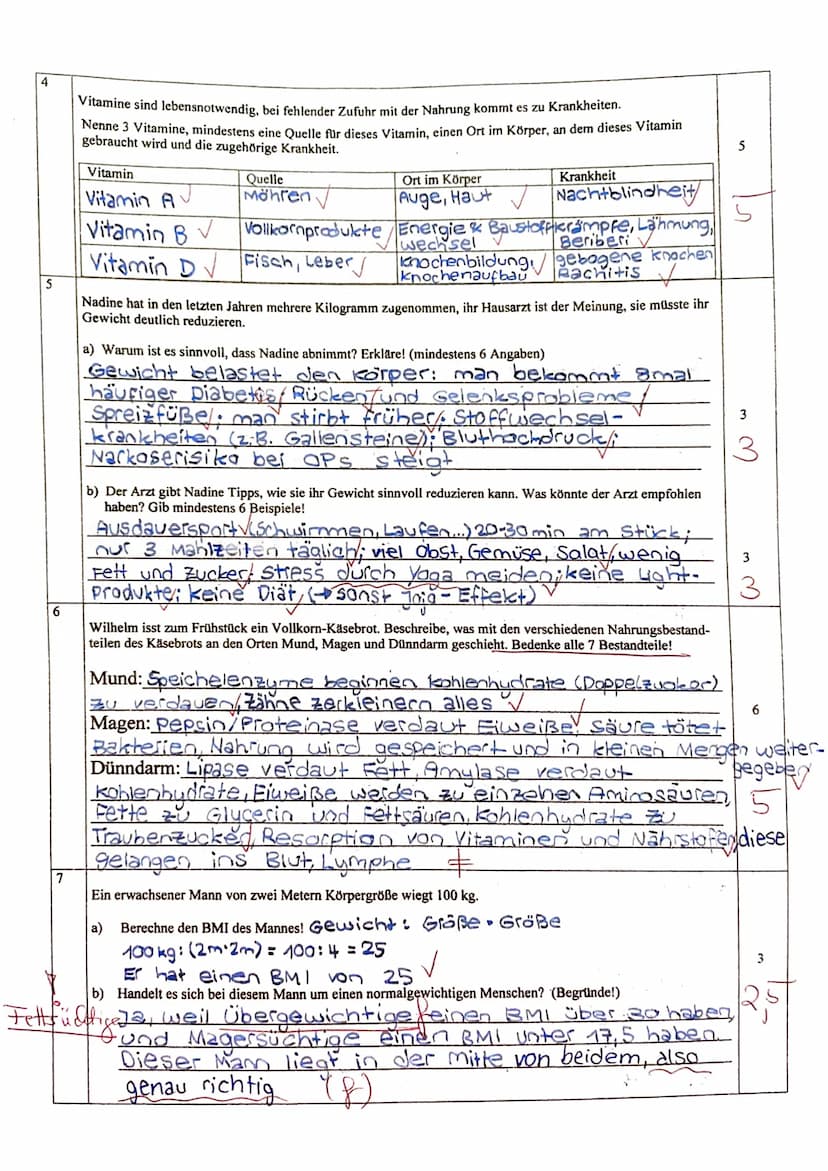 4
Vitamine sind lebensnotwendig, bei fehlender Zufuhr mit der Nahrung kommt es zu Krankheiten.
Nenne 3 Vitamine, mindestens eine Quelle für dieses Vitamin, einen Ort im Körper, an dem dieses Vitamin
gebraucht wird und die zugehörige Krankheit.
5
5
Vitamin Quelle Ort im Körper Krankheit
Vitamin A Möhren Auge, Haut Nachtblindheit
Vitamin B Vollkornprodukte Energie & Baustoff- krämpfe, Lähmung,
wechsel Beriberi
Vitamin D Fisch, Leber Knochenbildung, gebogene Knochen
Knochenaufbau Rachitis
5
Nadine hat in den letzten Jahren mehrere Kilogramm zugenommen, ihr Hausarzt ist der Meinung, sie müsste ihr
Gewicht deutlich reduzieren.
a) Warum ist es sinnvoll, dass Nadine abnimmt? Erkläre! (mindestens 6 Angaben)
Gewicht belastet den Körper: man bekommt 8mal
häufiger Diabetis, Rücken und Gelenksprobleme,
Spreizfüße; man stirbt früher; Stoffwechsel-
krankheiten (z.B. Gallensteine); Bluthochdruck;
Narkoserisiko bei OPs steigt
3
3
b) Der Arzt gibt Nadine Tipps, wie sie ihr Gewicht sinnvoll reduzieren kann. Was könnte der Arzt empfohlen
haben? Gib mindestens 6 Beispiele!
Ausdauersport (Schwimmen, Laufen...) 20-30 min am Stück;
nur 3 Mahlzeiten täglich; viel Obst, Gemüse, Salat, wenig
Fett und Zucker; Stress durch Yoga meiden; keine Light-
Produkte; keine Diät, (→ sonst Jojo-Effekt)
3
3
6
Wilhelm isst zum Frühstück ein Vollkorn-Käsebrot. Beschreibe, was mit den verschiedenen Nahrungsbestand-
teilen des Käsebrots an den Orten Mund, Magen und Dünndarm geschieht. Bedenke alle 7 Bestandteile!
Mund: Speichelenzyme beginnen Kohlenhydrate (Doppelzucker)
zu verdauen, Zähne zerkleinern alles
Magen: Pepsin/Proteinase verdaut Eiweiße, Säure tötet
Bakterien, Nahrung wird gespeichert und in kleinen Mengen weiter-
gegeben
Dünndarm: Lipase verdaut Fett, Amylase verdaut
Kohlenhydrate, Eiweiße werden zu einzelnen Aminosäuren,
Fette zu Glycerin und Fettsäuren, Kohlenhydrate zu
Traubenzucker, Resorption von Vitaminen und Nährstofen, diese
gelangen ins Blut, Lymphe
6
5
7
Ein erwachsener Mann von zwei Metern Körpergröße wiegt 100 kg.
a) Berechne den BMI des Mannes! Gewicht : Größe · Größe
100kg : (2m·2m) = 100 : 4 = 25
Er hat einen BMI von 25
b) Handelt es sich bei diesem Mann um einen normalgewichtigen Menschen? (Begründe!)
Fettsüchtige
Ja, weil Übergewichtige einen BMI über 30 haben,
und Magersüchtige einen BMI unter 17,5 haben.
Dieser Mann liegt in der mitte von beidem, also
genau richtig (f)
3
2,5